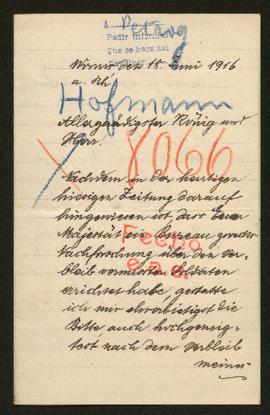 A Petrog
Pedir informes
Que se hara asi
Worms den 18. Juni 1916
a. Rh.
Hofmann
Allergnädigster König und
Herr.
X 8066
Nachdem in der heutigen
hiesigen Zeitung darauf
hingewiesen ist dass Euer
Majestät ein Bureau zwecks
Nachforschung über den Ver-
bleib vermisster Soldaten
Fecho
errichtet habe, gestatte
ich mir ehrerbietigst die
Bitte, auch hochgeneig-
test nach dem Verbleib
meines